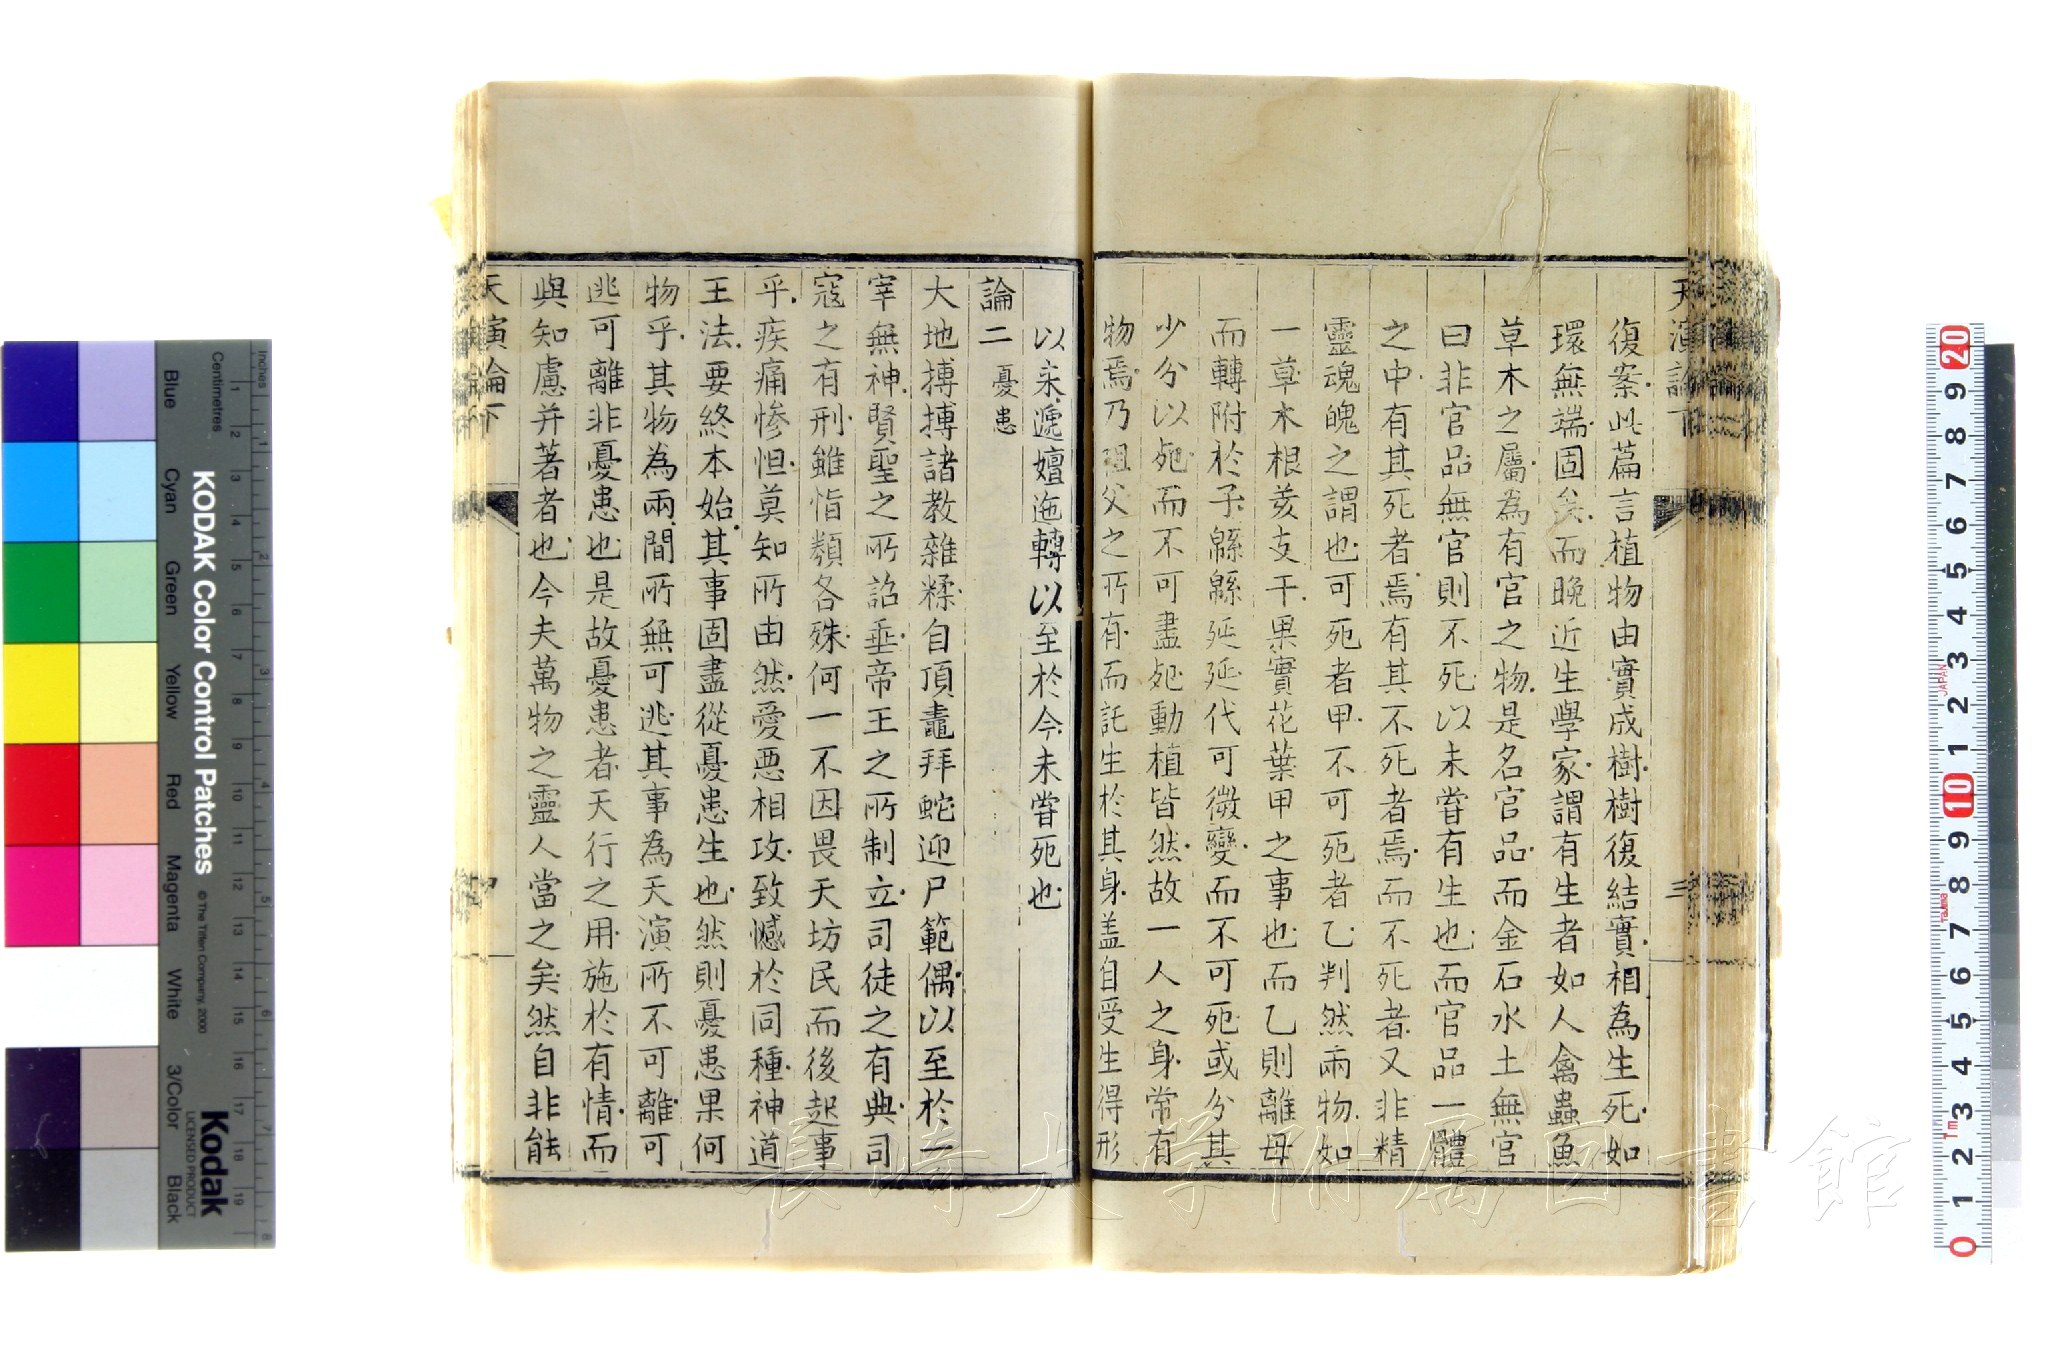 天演論下
三
復案此篇言植物由實成樹樹復結實相為生死如
環無端固矣而晚近生學家謂有生者如人禽蟲魚
草木之屬為有官之物是名官品而金石水土無官
曰非官品無官則不死以未嘗有生也而官品一體
之中有其死者焉有其不死者焉而不死者又非精
靈魂魄之謂也可死者甲不可死者乙判然兩物如
一草木根荄支干果實花葉甲之事也而乙則離母
而轉附於子緜緜延延代可微變而不可死或分其
少分以死而不可盡死動植皆然故一人之身常有
物焉乃祖父之所有而託生於其身蓋自受生得形
以來遞嬗迤轉以至於今未嘗死也
論二 憂患
大地摶摶諸教雜糅自頂鼃拜蛇迎尸範偶以至於一
宰無神賢聖之所詔垂帝王之所制立司徒之有典司
寇之有刑雖恉類各殊何一不因畏天坊民而後起事
乎疾痛慘怛莫知所由然愛惡相攻致憾於同種神道
王法要終本始其事固盡從憂患生也然則憂患果何
物乎其物為兩間所無可逃其事為天演所不可離可
逃可離非憂患也是故憂患者天行之用施於有情而
與知慮并著者也今夫萬物之靈人當之矣然自非能
天演論下
Inches
Centimetres
Blue
Cyan
Green
Yellow
Red
Magenta
White
3/Color
Black
KODAK Color Control Patches
© The Tiffen Company, 2000
Kodak
LICENSED PRODUCT
長崎大学附属図書館
JAPAN